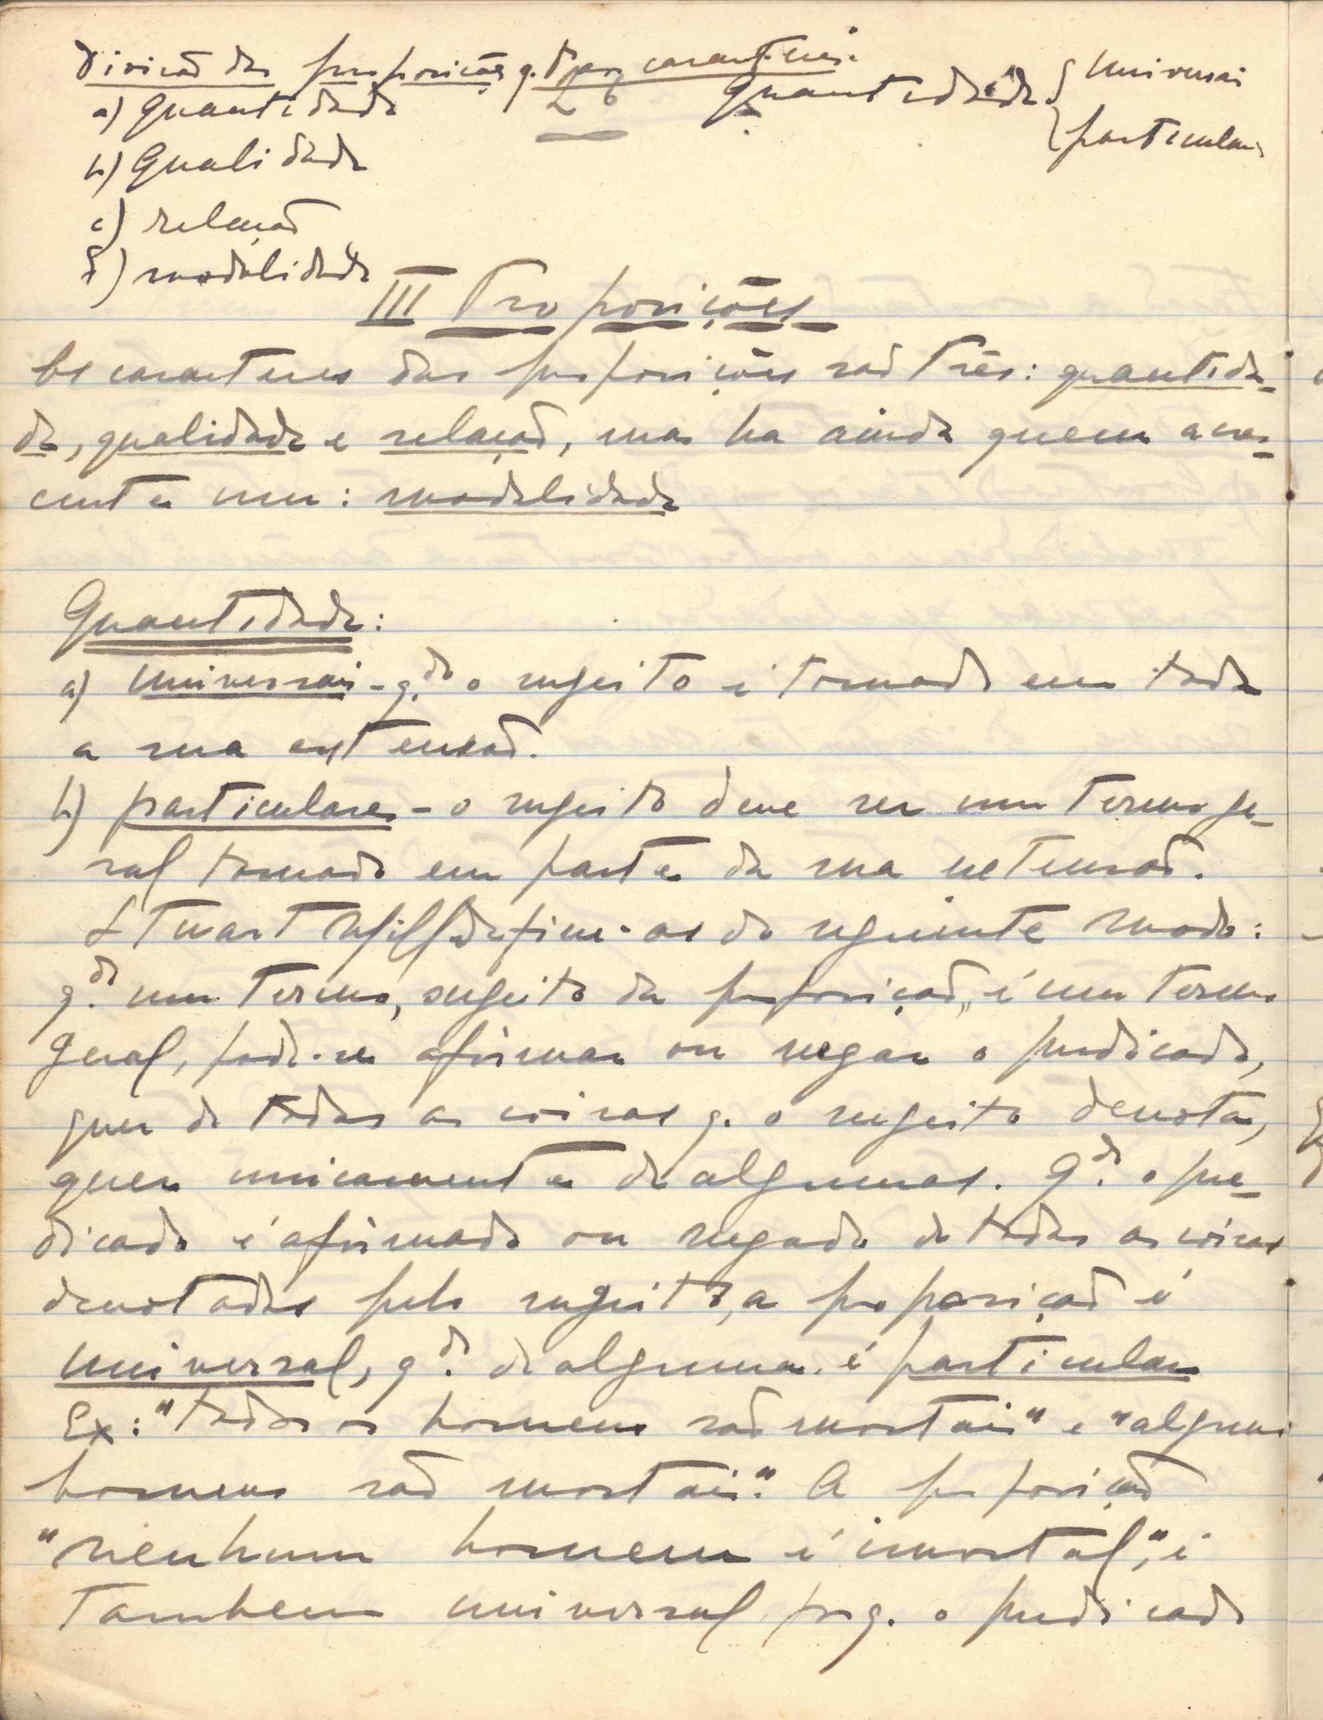 Divisão das proposições q.to aos caracteres.
a) Quantidade
Quantidade { Universais
particulares
b) Qualidade
c) relação
d) modalidade
III Proposições
Os caracteres das proposições são três: quantida-
de, qualidade e relação, mas ha ainda quem acres-
centa um: modalidade
Quantidade:
a) Universais - q.do o sugeito é tomado em toda
a sua extensão.
b) particulares - o sugeito deve ser um termo ge-
ral tomado em parte da sua extensão.
Stuart Mill define-as do seguinte modo:
q.do um termo, sugeito da proposição, é um termo
geral, pode-se afirmar ou negar o predicado,
quer de todas as coisas q. o sugeito denota,
quer unicamente de algumas. Q.do o pre-
dicado é afirmado ou negado de todas as coisas
denotadas pelo sugeito, a proposição é
universal, q.do de alguma é particular
Ex: "todos os homens são mortais" e "alguns
homens são mortais". A proposição
"nenhum homem é imortal", é
Tambem universal porq. o predicado